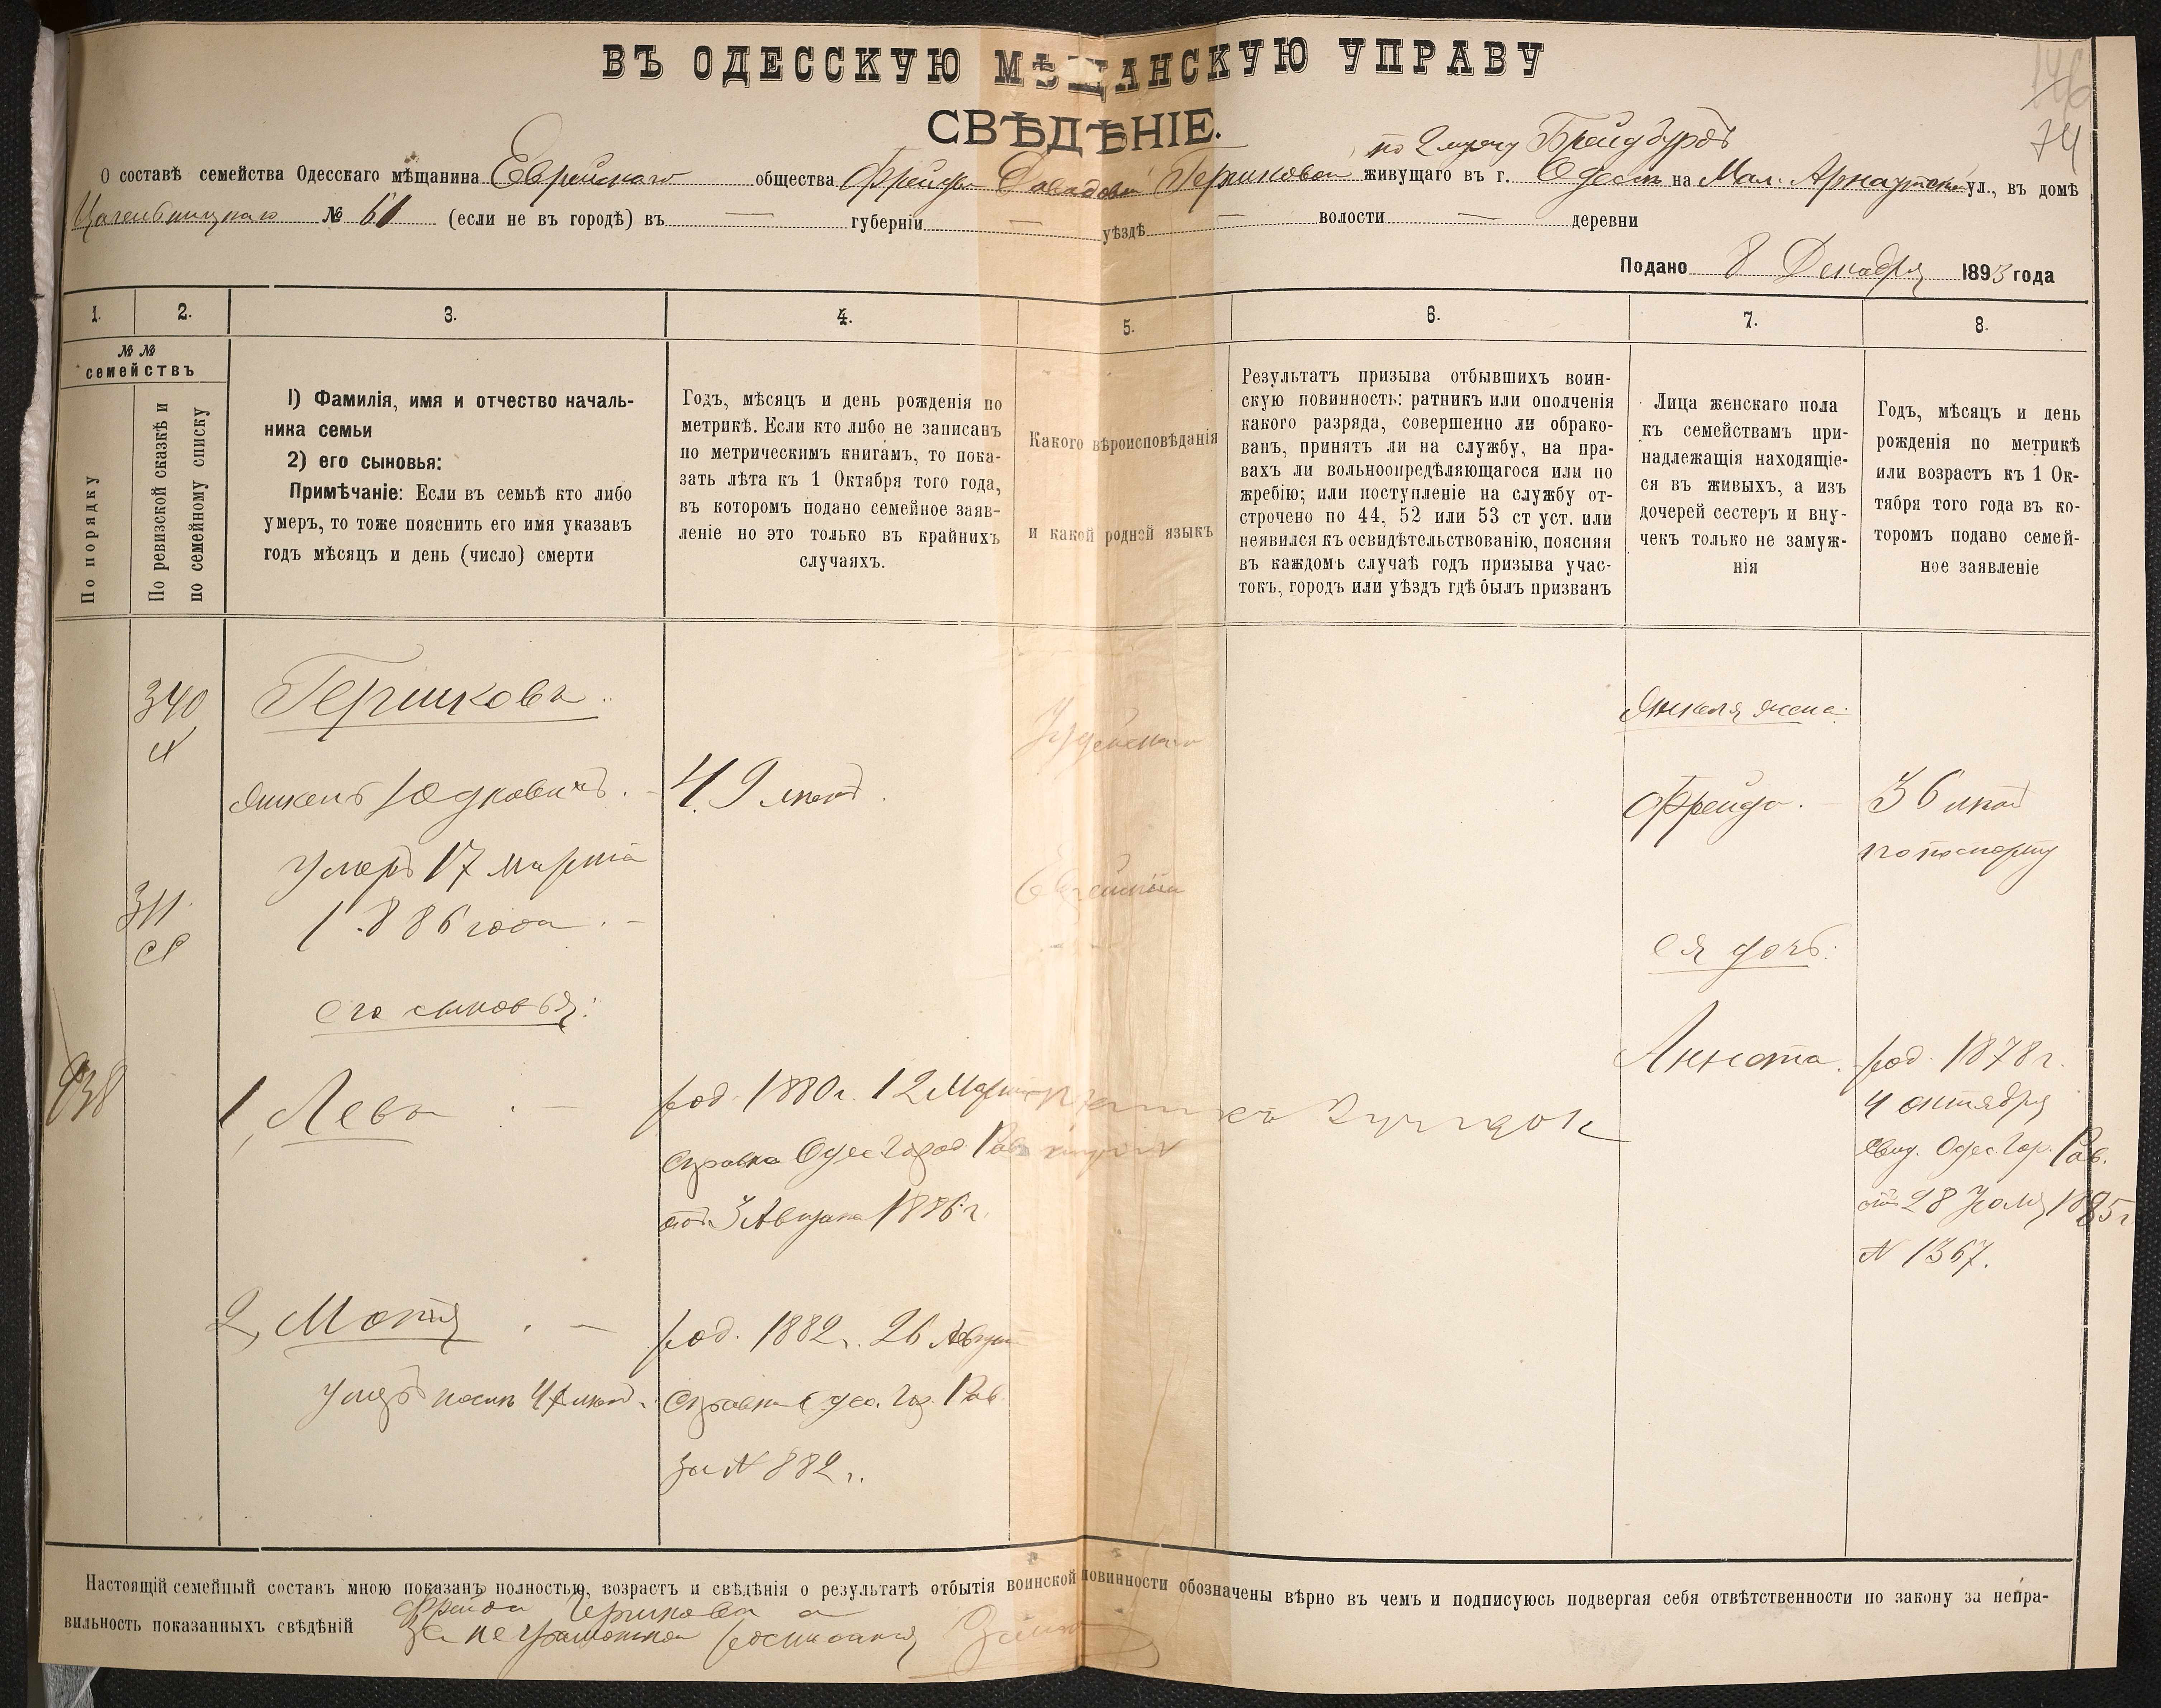 ВЪ ОДЕССКУЮ МѢЩАНСКУЮ УПРАВУ
146
74
СВѢДѢНІЕ.
по 2 мужу Брейдбурдъ
О составѣ семейства Одесскаго мѣщанина Еврейскаго общества Фрейды Давидовой Гершковой живущаго въ г. Одессѣ на Мал. Арнаутской ул., въ домѣ
№ 61 (если не въ городѣ) въ — губерніи — уѣздѣ — волости — деревни
Подано 8 Декабря 1893 года
1. 2. 3. 4. 5. 6. 7. 8.
№ №
семействъ
По порядку
По ревизской сказкѣ и
по семейному списку
1) Фамилія, имя и отчество началь-
ника семьи
2) его сыновья:
Примѣчаніе: Если въ семьѣ кто либо
умеръ, то тоже пояснить его имя указавъ
годъ мѣсяцъ и день (число) смерти
Годъ, мѣсяцъ и день рожденія по
метрикѣ. Если кто либо не записанъ
по метрическимъ книгамъ, то пока-
зать лѣта къ 1 Октября того года,
въ которомъ подано семейное заяв-
леніе но это только въ крайнихъ
случаяхъ.
Какого вѣроисповѣданія
и какой родной языкъ
Результатъ призыва отбывшихъ воин-
скую повинность: ратникъ или ополченія
какого разряда, совершенно ли обрако-
ванъ, принятъ ли на службу, на пра-
вахъ ли вольноопредѣляющагося или по
жребію; или поступленіе на службу от-
строчено по 44, 52 или 53 ст уст. или
неявился къ освидѣтельствованію, поясняя
въ каждомъ случаѣ годъ призыва учас-
токъ, городъ или уѣздъ гдѣ былъ призванъ
Лица женскаго пола
къ семействамъ при-
надлежащія находящіе-
ся въ живыхъ, а изъ
дочерей сестеръ и вну-
чекъ только не замуж-
нія
Годъ, мѣсяцъ и день
рожденія по метрикѣ
или возрастъ къ 1 Ок-
тября того года въ ко-
торомъ подано семей-
ное заявленіе
340
311
938
Гершковъ
Янкель Юдковичъ. —
Умеръ 17 марта
1886 года. —
его сыновья:
1, Левъ . —
2, Мотя . —
Умеръ
49 лѣтъ.
род. 1880 г. 12 Марта
справка Одес. Город. Рав.
от 3 Августа 1886 г.
род. 1882 г. 26 Август
Справка Одес. Гор. Рав.
за N 882 г.
Іудейскаго
Еврейскій
Янкеля жена:
Фрейда. —
ея дочь:
Аннета.
36 лѣтъ
по паспорту
род. 1878 г.
4 октября
Свид. Одес. Гор. Рав.
отъ 28 1885 г
N 1367.
Настоящій семейный составъ мною показанъ полностью, возрастъ и свѣдѣнія о результатѣ отбытія воинской повинности обозначены вѣрно въ чемъ и подписуюсь подвергая себя отвѣтственности по закону за непра-
вильность показанныхъ свѣдѣній Фрейда Гершкова а
за неграмотной